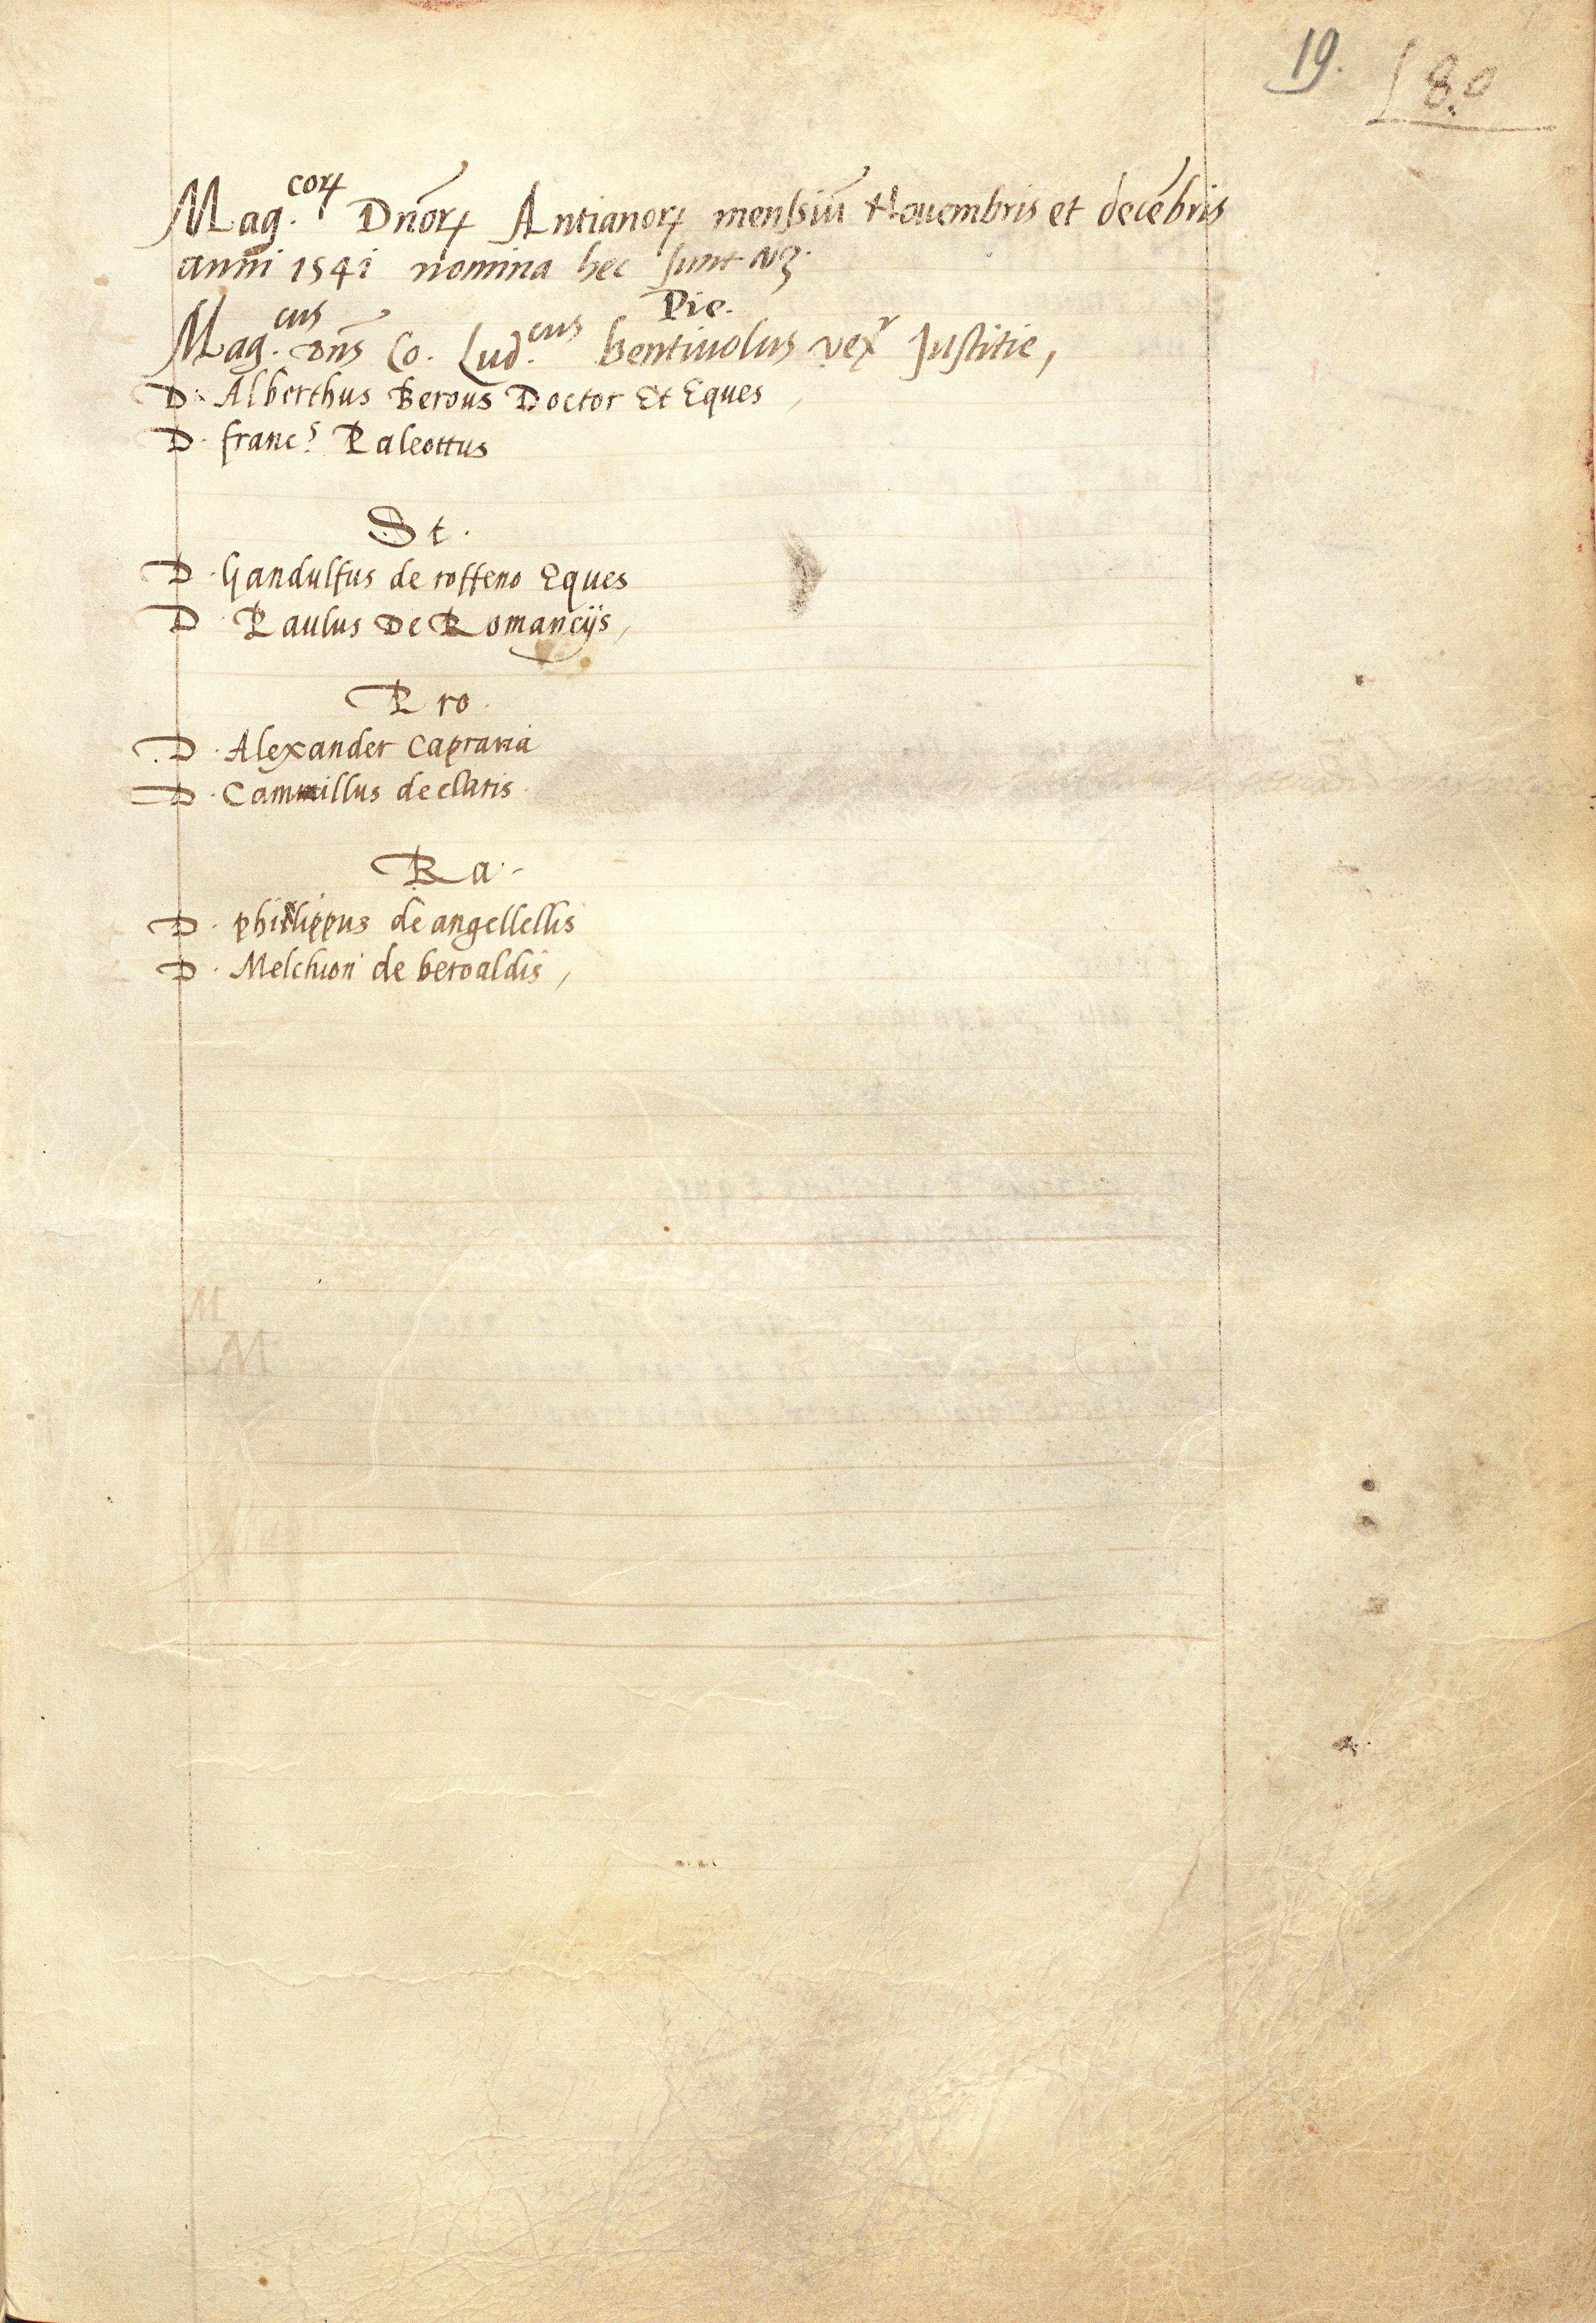 19. 18.º
Mag.corꝝ Dnōrꝝ Antianorꝝ mensiū Nouembris et decēbris
anni 1541 nomina hec sunt vꝫ.
Pie.
Mag.cus Dn̄s Co. Lud.cus bentiuolus vexr Justitie,
D. Alberthus Berous Doctor Et Eques,
D. francs. Paleottus
St.
D. Gandulfus de roffeno Eques
D. Paulus De Romancijs,
Pro.
D. Alexander Capraria
D. Cammillus de claris.
Ra.
D. phillippus de angellellis
D. Melchion de beroaldis,
M
M